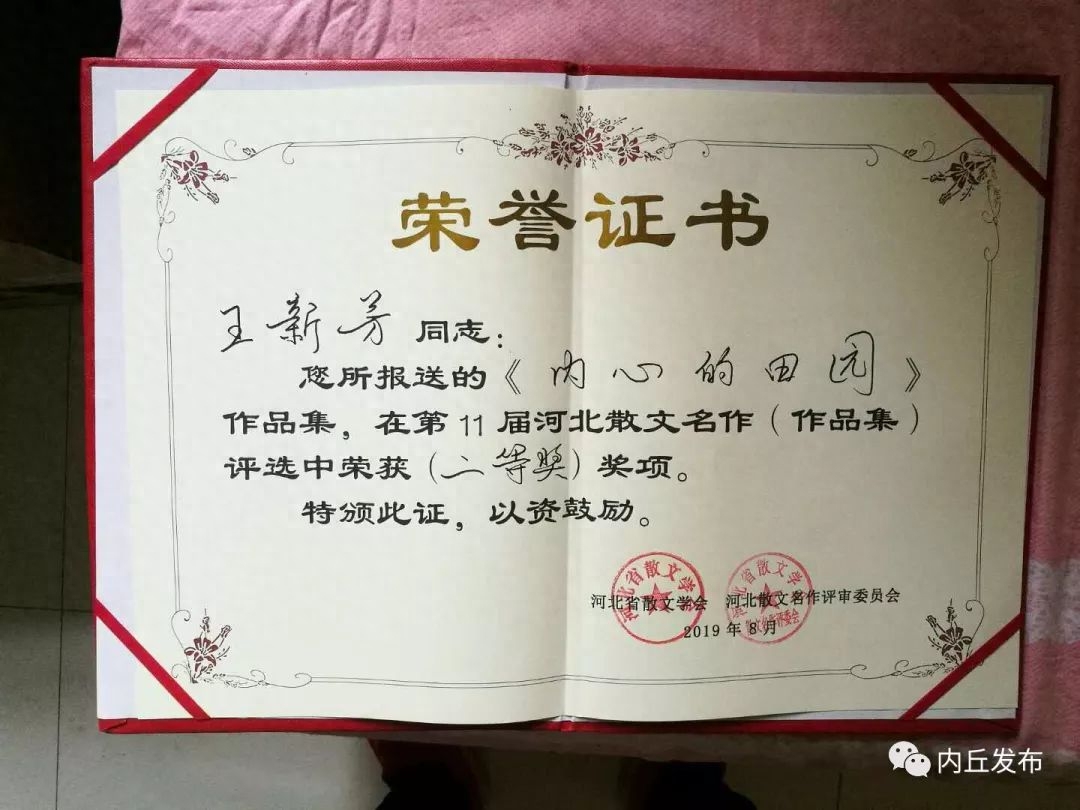 荣誉证书
王新芳 同志：
您所报送的《内心的田园》
作品集，在第11届河北散文名作（作品集）
评选中荣获（二等奖）奖项。
特颁此证，以资鼓励。
河北省散文学会 河北散文名作评审委员会
2019年8月
河北省散文学会
河北省散文学会
内丘发布